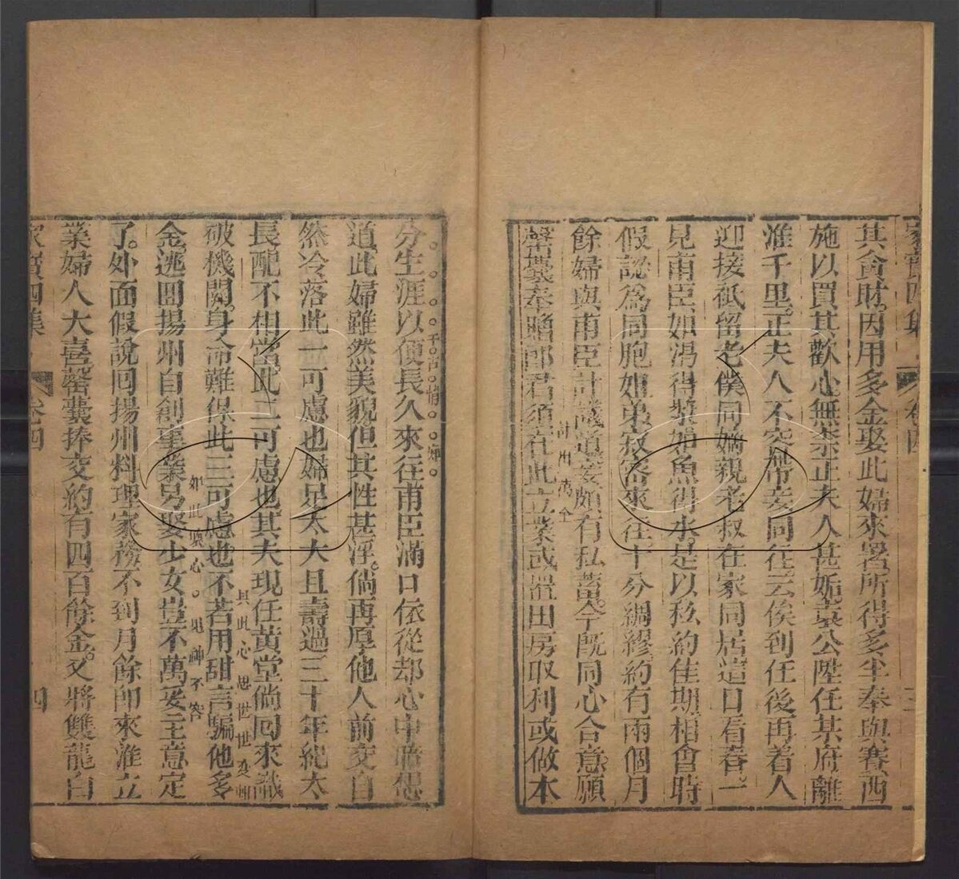 家寶四集
卷四
三
其貪財。因用多金娶此婦來署所得多半奉與賽西
施以買其歡心無奈正夫人甚妬某公陞任某府離
淮千里。正夫人不容帶妾同往云俟到任後再着人
迎接祇留老僕同嫡親老叔在家同居這日看春。一
見甫臣如渴得漿如魚得水是以私約佳期相會時
假認爲同胞姐弟叔客來往十分綢繆約有兩個月
餘婦與甫臣計議道妾頗有私蓄今既同心合意願
計出萬全
罄囊奉贈郎君須在此立業或置田房取利或做本
分生涯以便長久來往甫臣滿口依從却心中暗想
道。此婦雖然美貌。但其性甚淫。倘再厚他人前交自
然冷落此一可慮也婦足太大且壽過三十年紀太
長配不相當此二可慮也其夫現任黃堂倘回來識
破機關。身命難保此三可慮也不若用甜言騙他多
其此心思世世變
金。逃回揚州自創事業另娶少女豈不萬妥主意定
如此壞心。鬼神不容
了。外面假說回揚州料理家務不到月餘卽來淮立
業婦人大喜罄囊捧交約有四百餘金。又將雙龍白
家寶四集
卷四
四